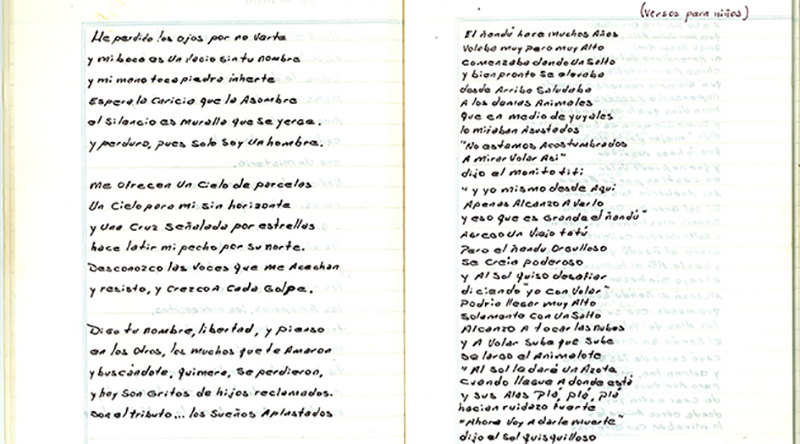 He perdido los ojos por no verte
y mi boca es un vacio sin tu nombre
y mi mano toca piedra inherte
Espera la Caricia que la Asombre
el Silencio es Muralla que se yerge.
y perduro, pues Solo Soy un hombre.
me Ofrecen Un Cielo de parcelas
Un Cielo para mi sin horizonte
y Una Cruz Señalada por estrellas
hace latir mi pecho por su norte.
Desconozco las Voces que me Acechan
y resisto, y Crezco A Cada Golpe.
Digo tu nombre, libertad, y pienso
en los Otros, los muchos que te Amaron
y buscándote, quimera, Se perdieron,
y hoy Son Gritos de hijos reclamados.
Son el tributo... los Sueños Aplastados
(Versos para niños)
El ñandú hace Muchos Años
Volaba muy pero muy Alto
Comenzaba dando Un Salto
y bien pronto Se elevaba
desde Arriba Saludaba
A los demas Animales
que en medio de yuyales
lo miraban Asustados
"No estamos Acostumbrados
A mirar Volar Asi"
dijo el monito titi
"y yo mismo desde Aqui
Apenas Alcanzo A Verlo
y eso que es Grande el ñandú"
Agrego Un Viejo tatú
Pero el ñandu Orgulloso
Se Creia poderoso
y Al Sol quiso desafiar
diciendo "yo Con Volar"
Podria llegar muy Alto
Solamente Con Un Salto
Alcanzo A tocar las Nubes
y A Volar Sube que Sube
Se largo el Animalote
"Al Sol le daré un Azote
Cuando llegue A donde está
y sus Alas Pla, plá, plá
hacian ruidazo fuerte
"Ahora Voy A darle muerte"
dijo el Sol quisquilloso